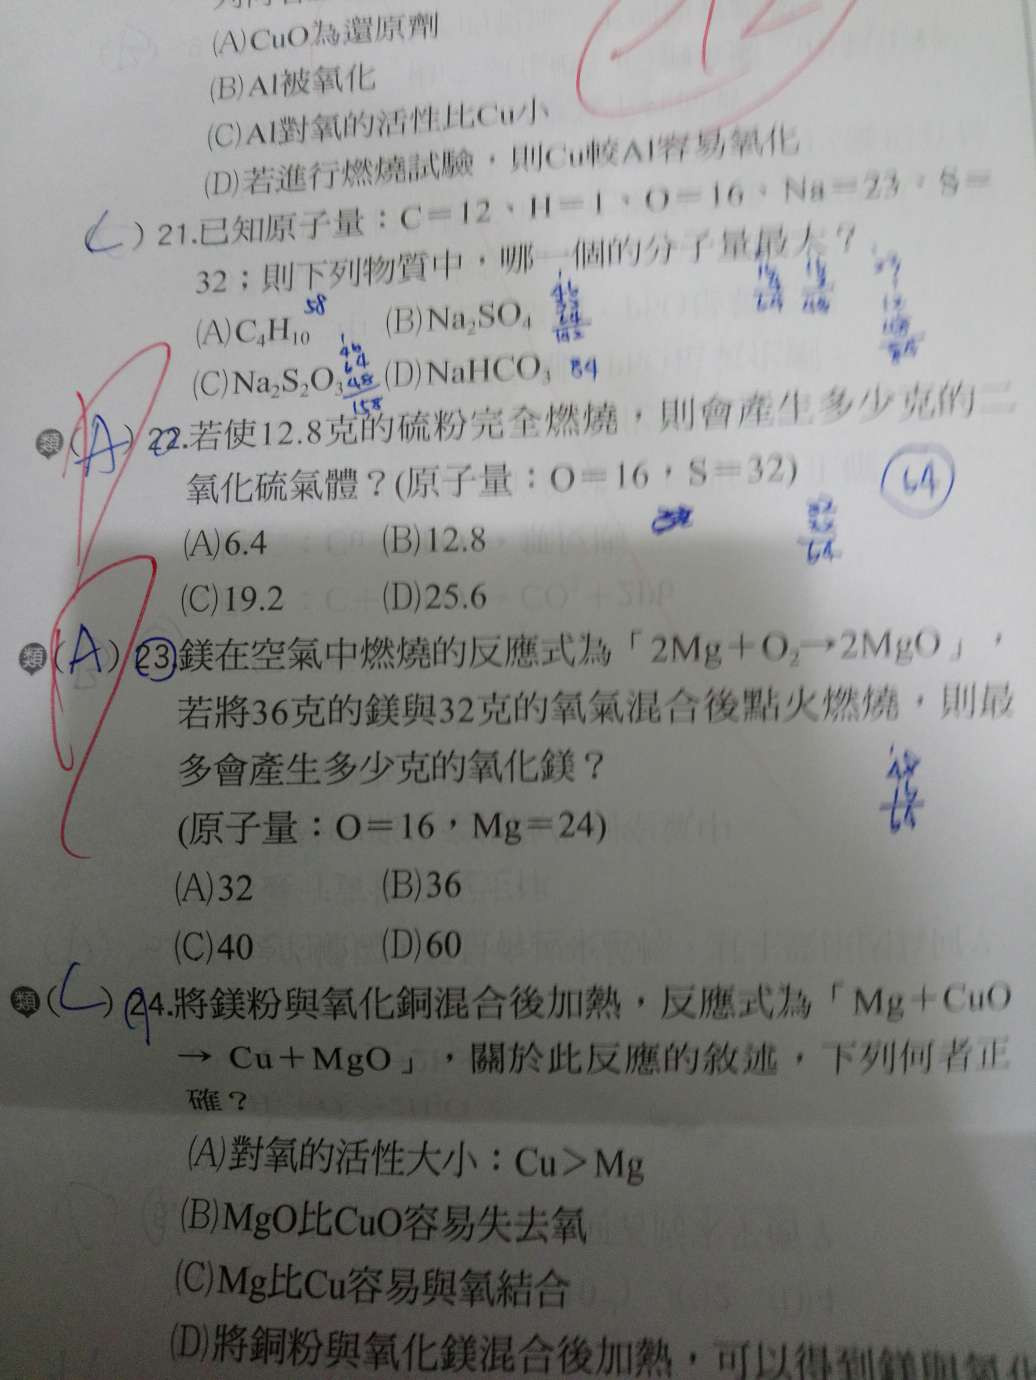 (A)CuO為還原劑
(B)Al被氧化
(C)Al對氧的活性比Cu小
(D)若進行燃燒試驗，則Cu較Al容易氧化
(C) 21.已知原子量：C＝12、H＝1、O＝16、Na＝23、S＝
32；則下列物質中，哪一個的分子量最大？
(A)C₄H₁₀ 58 (B)Na₂SO₄
(C)Na₂S₂O₃ 158 (D)NaHCO₃ 84
類(A) 22.若使12.8克的硫粉完全燃燒，則會產生多少克的二
氧化硫氣體？(原子量：O＝16，S＝32) 64
(A)6.4 (B)12.8
64
(C)19.2 (D)25.6
類(A) 23.鎂在空氣中燃燒的反應式為「2Mg＋O₂→2MgO」，
若將36克的鎂與32克的氧氣混合後點火燃燒，則最
多會產生多少克的氧化鎂？
48
16
64
(原子量：O＝16，Mg＝24)
(A)32 (B)36
(C)40 (D)60
類(C) 24.將鎂粉與氧化銅混合後加熱，反應式為「Mg＋CuO
→ Cu＋MgO」，關於此反應的敘述，下列何者正
確？
(A)對氧的活性大小：Cu＞Mg
(B)MgO比CuO容易失去氧
(C)Mg比Cu容易與氧結合
(D)將銅粉與氧化鎂混合後加熱，可以得到鎂與氧化